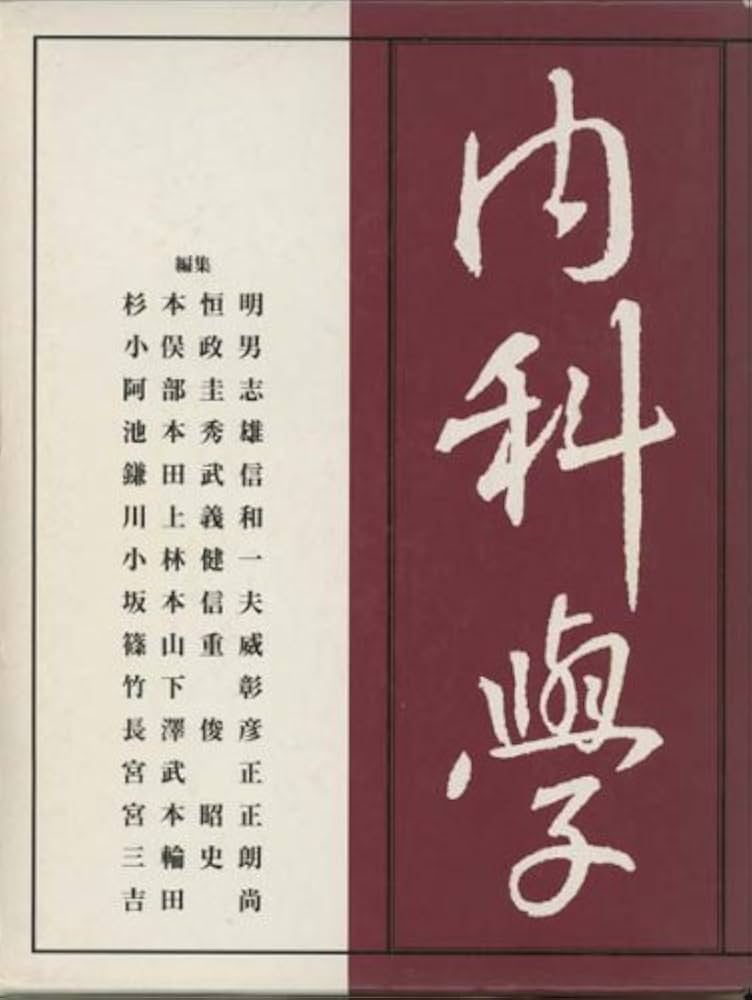 内科學
編集
杉本恒明
小俣政男
阿部圭志
池本秀雄
鎌田武信
川上義和
小林健一
坂本信夫
篠山重威
竹下彰
長澤俊彦
宮武正
宮本昭正
三輪史朗
吉田尚